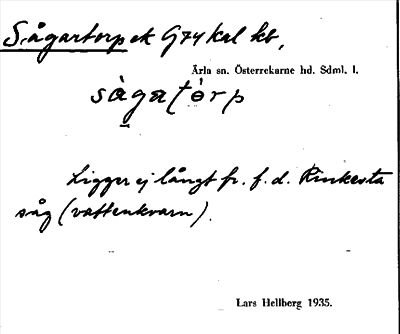 Sågartorp ek G74 Kal kb,
Ärla sn. Österrekarne hd. Sdml. l.
sàgatórp
Ligger ej långt fr. f.d. Rinkesta
såg (vattenkvarn).
Lars Hellberg 1935.